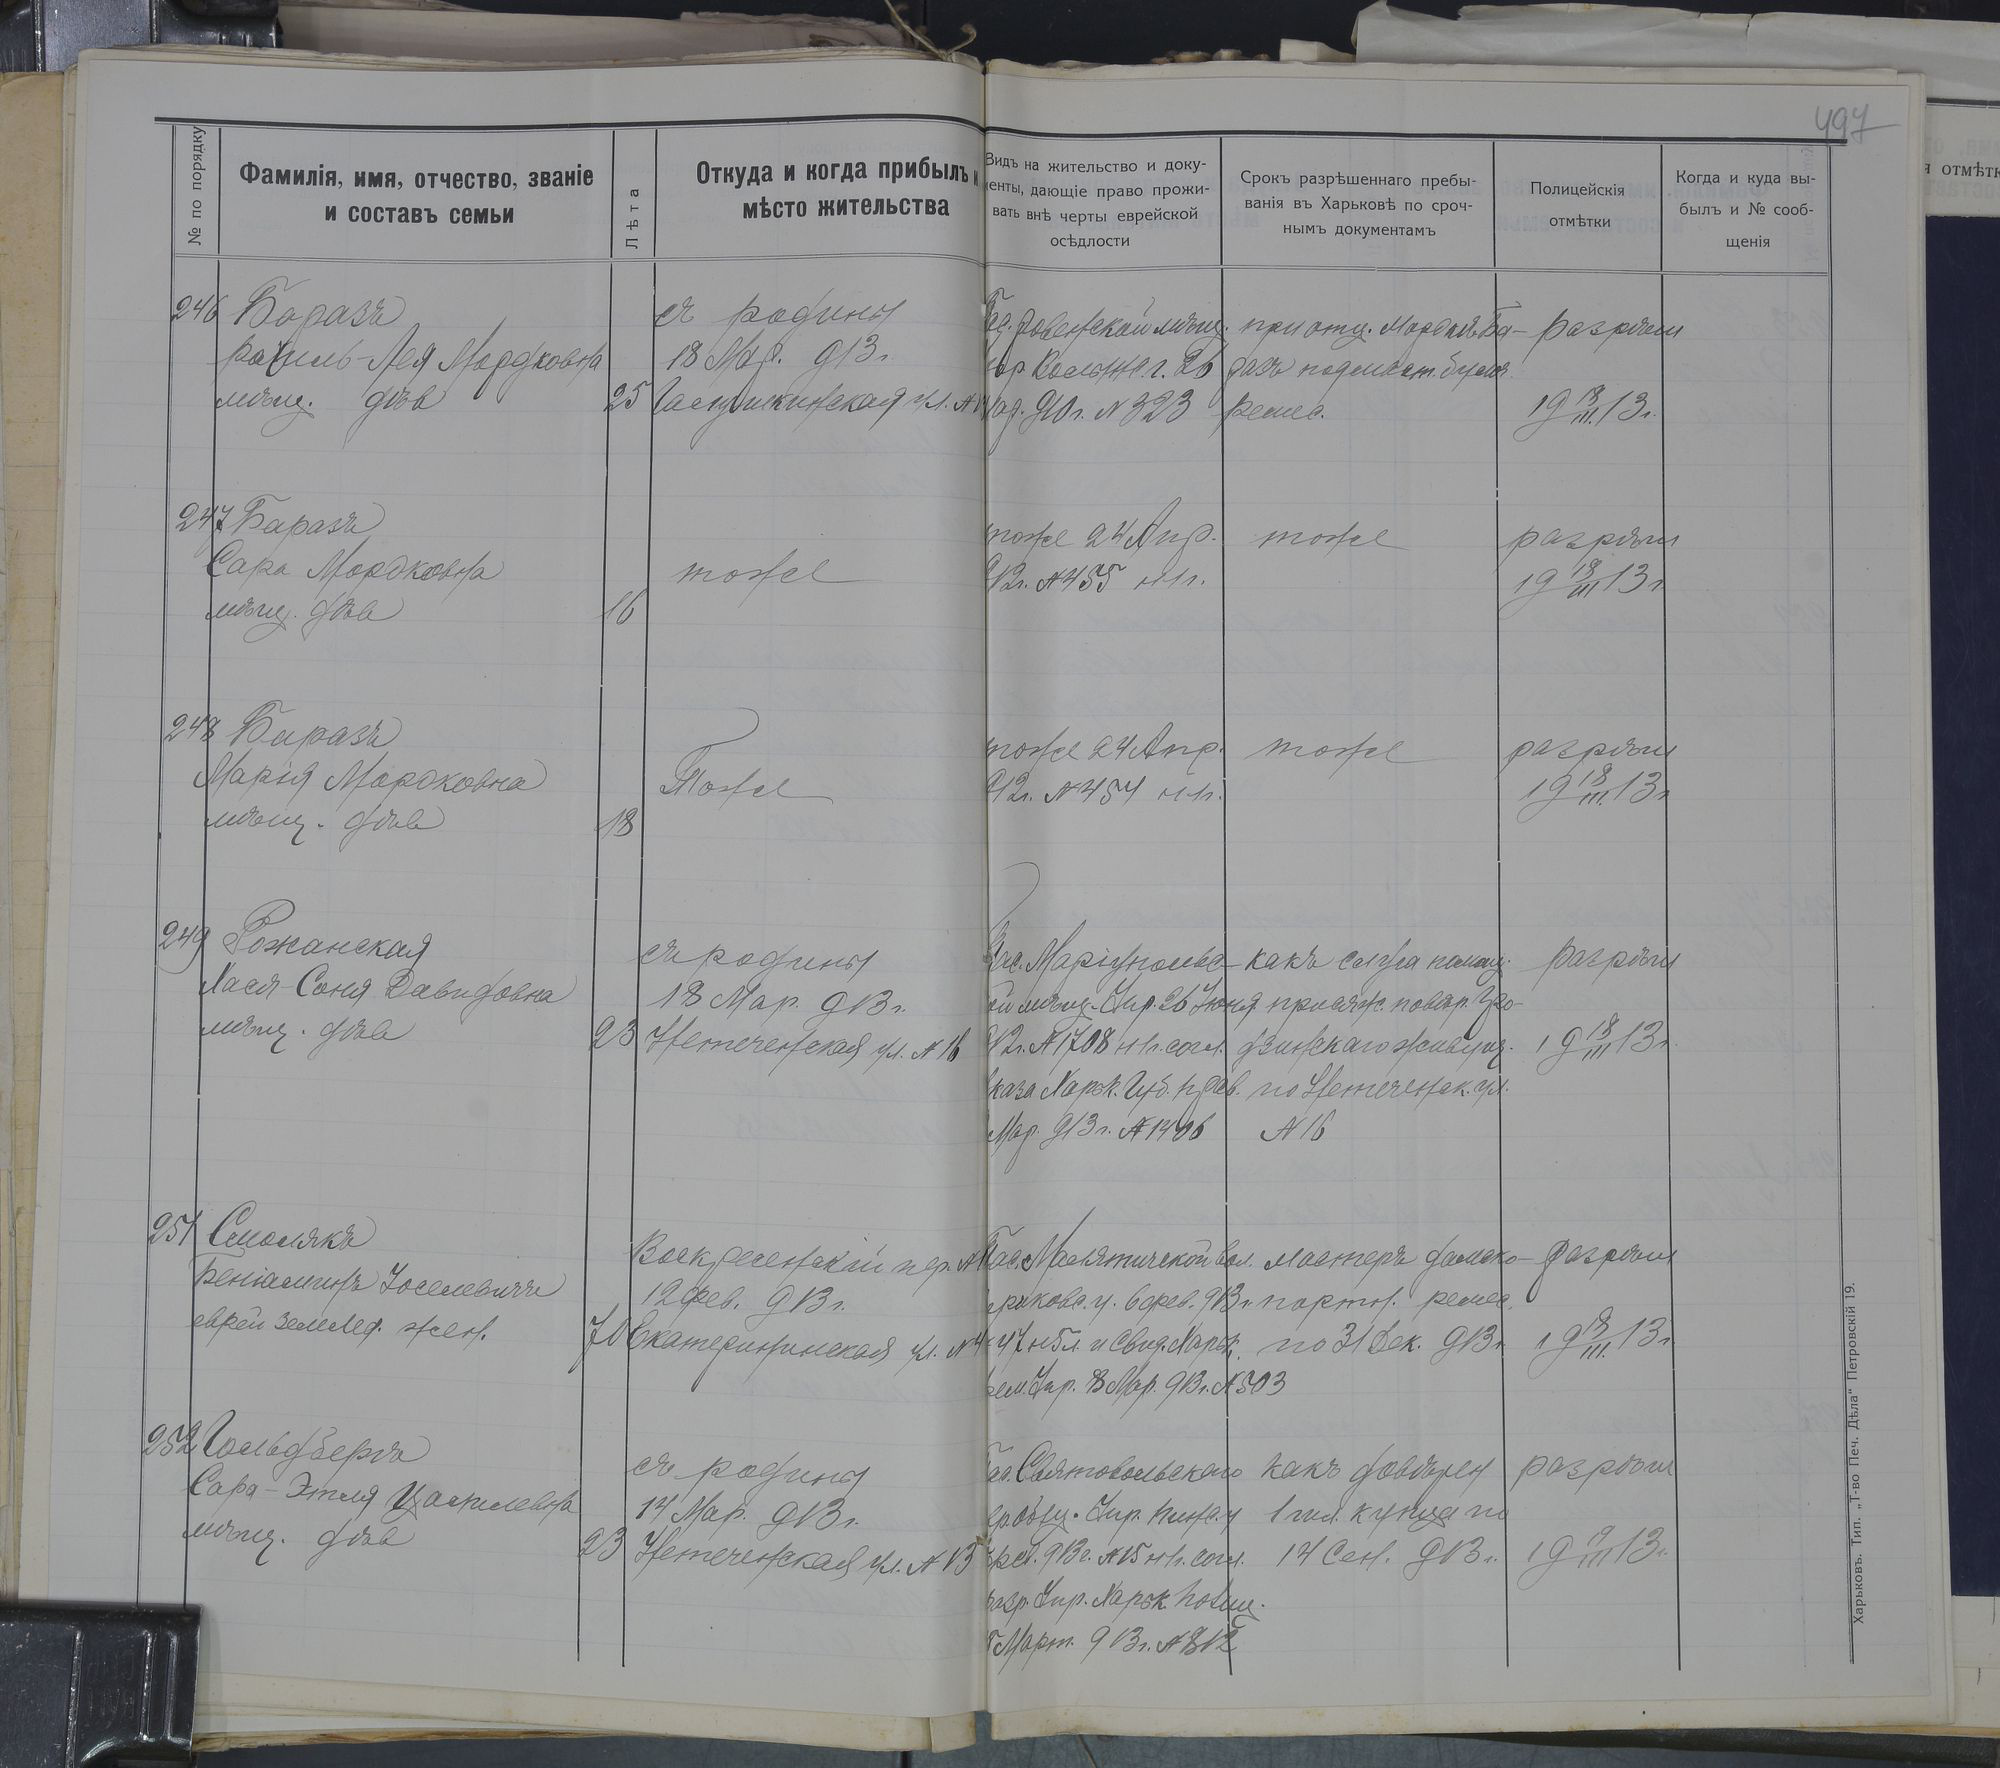 497
№ по порядку
Фамилія, имя, отчество, званіе
и составъ семьи
Лѣта
Откуда и когда прибылъ и
мѣсто жительства
Видъ на жительство и доку-
менты, дающіе право прожи-
вать внѣ черты еврейской
осѣдлости
Срокъ разрѣшеннаго пребы-
ванія въ Харьковѣ по сроч-
нымъ документамъ
Полицейскія
отмѣтки
Когда и куда вы-
былъ и № сооб-
щенія
246 Баразъ
Рахиль-Лея Мордковна
мѣщ. дѣв
25
съ родины
18 Мар. 913 г.
ул. №
Ровенской мѣщ.
26
910 г. № 323
при отц. Мордкѣ Ба-
разъ
ремес.
разрѣш
19 18/III 13 г.
247 Баразъ
Сара Мордковна
мѣщ. дѣв
16
тоже
тоже 24 Апр.
912 г. № 455 н1г.
тоже
разрѣш
19 18/III 13 г
248 Баразъ
Марія Мордковна
мѣщ. дѣв
18
Тоже
тоже 24 Апр.
912 г. № 454 н1г.
тоже
разрѣш
19 18/III 13 г
249 Рожанская
Хася-Соня Давидовна
мѣщ. дѣв
23
съ родины
18 Мар. 913 г.
Нетеченская ул. № 16
Пас. Маріупольс-
ой мѣщ. Упр. 26 Іюня
912 г. № 1708 н1г. согл.
каза Харьк. Губ. прав.
Мар. 913 г. № 1406
какъ слуга помощ.
присяж. повѣр. Гро-
дзинскаго живущ.
по Нетеченск. ул.
№ 16
разрѣш
19 18/III 13 г.
251 Смолякъ
Беніаминъ Іоселевичъ
еврей землед. жен.
70
Воскресенскій пер. №
12 фев. 913 г.
Екатерининская ул. № 4
Пас. вол.
у. 6 фев. 913 г.
47 н5л. и свид. Харьк.
рем. Упр. 8 Мар. 913 г. № 503
мастеръ дамско-
портн. ремес.
по 31 Дек. 913 г
разрѣш
19 18/III 13 г.
252 Гольдбергъ
Сара-Этля
мѣщ. дѣв
23
съ родины
14 Мар. 913 г.
Нетеченская ул. № 13
Пас. Святовольскаго
Упр. Пинск. у
913 г. № 15 н1г. согл.
разр. Упр. Харьк Полиц.
Март. 913 г. № 812
какъ довѣрен
1 гил. купца по
14 Сен. 913 г.
разрѣш
19 /III 13 г.
Харьковъ. Тип. „Т-во Печ. Дѣла“ Петровскій 19.